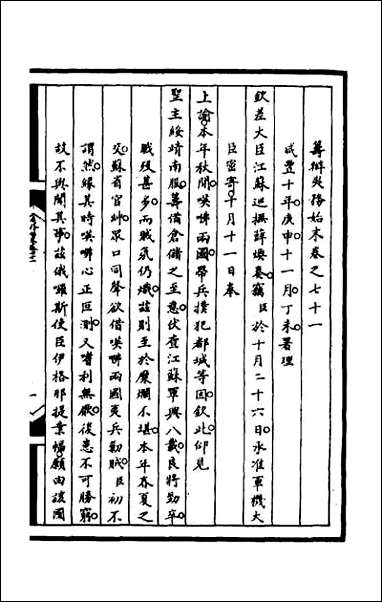 籌辦夷務始末卷之七十一
咸豐十年庚申十一月丁未署理
欽差大臣江蘇巡撫薛煥奏竊臣於十月二十六日承准軍機大
臣密寄十月十一日奉
上諭本年秋間𠸄㗎兩國帶兵擾犯都城等因欽此仰見
聖主綏靖南服籌備倉儲之至意伏查江蘇軍興八載良將勁卒
戕賊甚多而賊氛仍熾該則至於糜爛不堪本年春夏之
交蘇省官紳眾口同聲欲借𠸄㗎兩國夷兵勦賊臣初不
謂然緣其時𠸄㗎心正叵測又嗜利無厭後患不可勝窮
故不與聞其事茲俄囉斯使臣伊格那提業幅願由該國